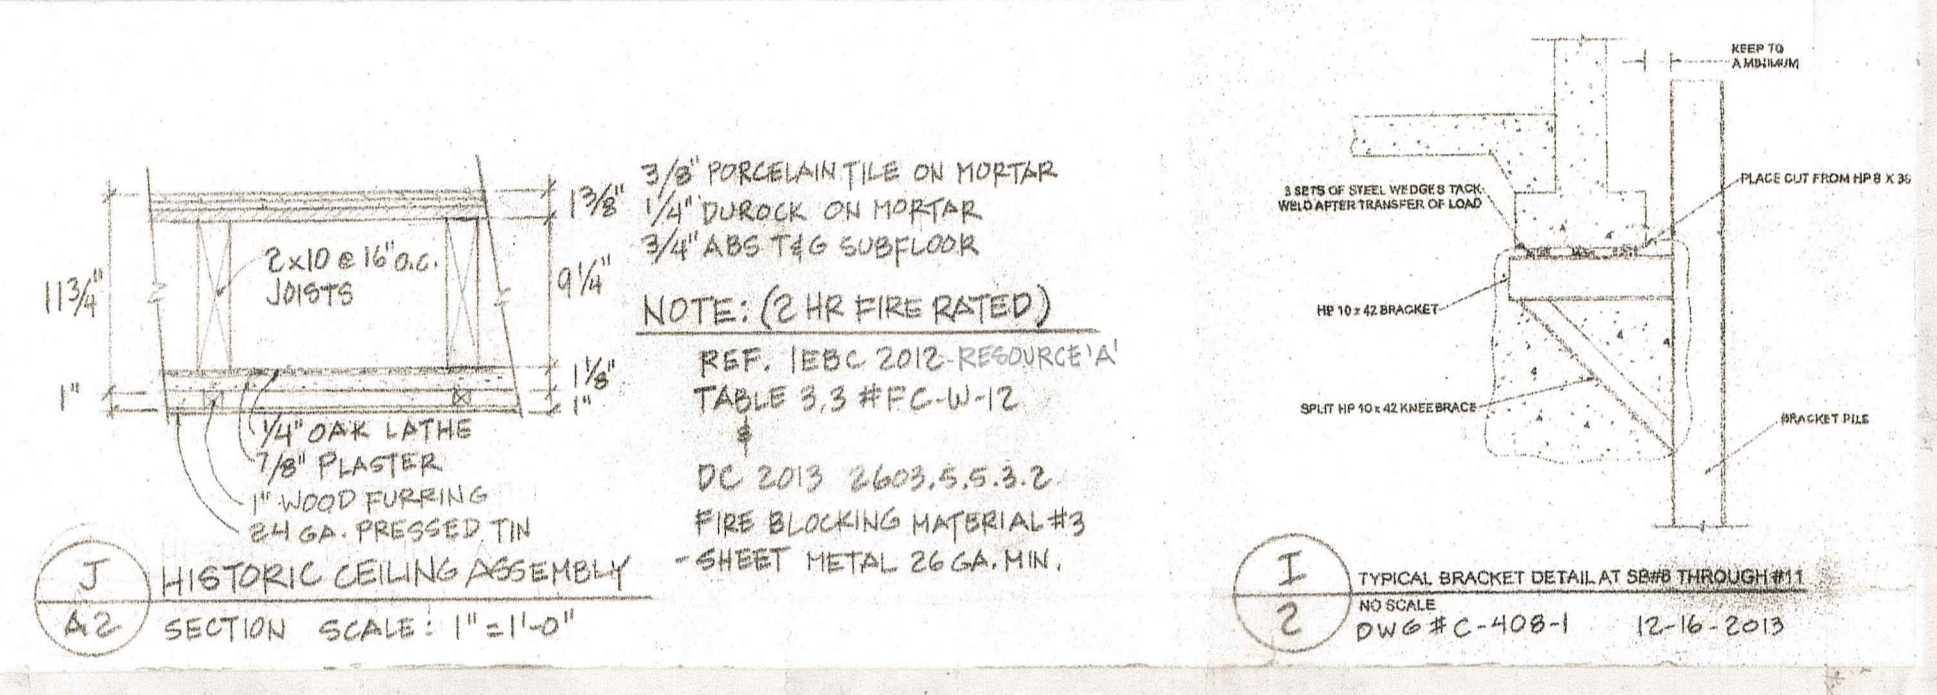 11 3/4"
1"
2x10 @ 16" o.c.
JOISTS
1 3/8"
9 1/4"
1 1/8"
1"
1/4" OAK LATHE
7/8" PLASTER
1" WOOD FURRING
24 GA. PRESSED TIN
J
A2
HISTORIC CEILING ASSEMBLY
SECTION SCALE: 1"=1'-0"
3/8" PORCELAIN TILE ON MORTAR
1/4" DUROCK ON MORTAR
3/4" ABS T&G SUBFLOOR
NOTE: (2 HR FIRE RATED)
REF. IEBC 2012-RESOURCE 'A'
TABLE 3.3 #FC-W-12
&
DC 2013 2603.5.5.3.2
FIRE BLOCKING MATERIAL #3
-SHEET METAL 26 GA. MIN.
KEEP TO
A MINIMUM
3 SETS OF STEEL WEDGES TACK
WELD AFTER TRANSFER OF LOAD
PLACE CUT FROM HP 8 X 36
HP 10 x 42 BRACKET
SPLIT HP 10 x 42 KNEEBRACE
BRACKET PILE
I
2
TYPICAL BRACKET DETAIL AT SB#8 THROUGH #11
NO SCALE
DWG #C-408-1 12-16-2013